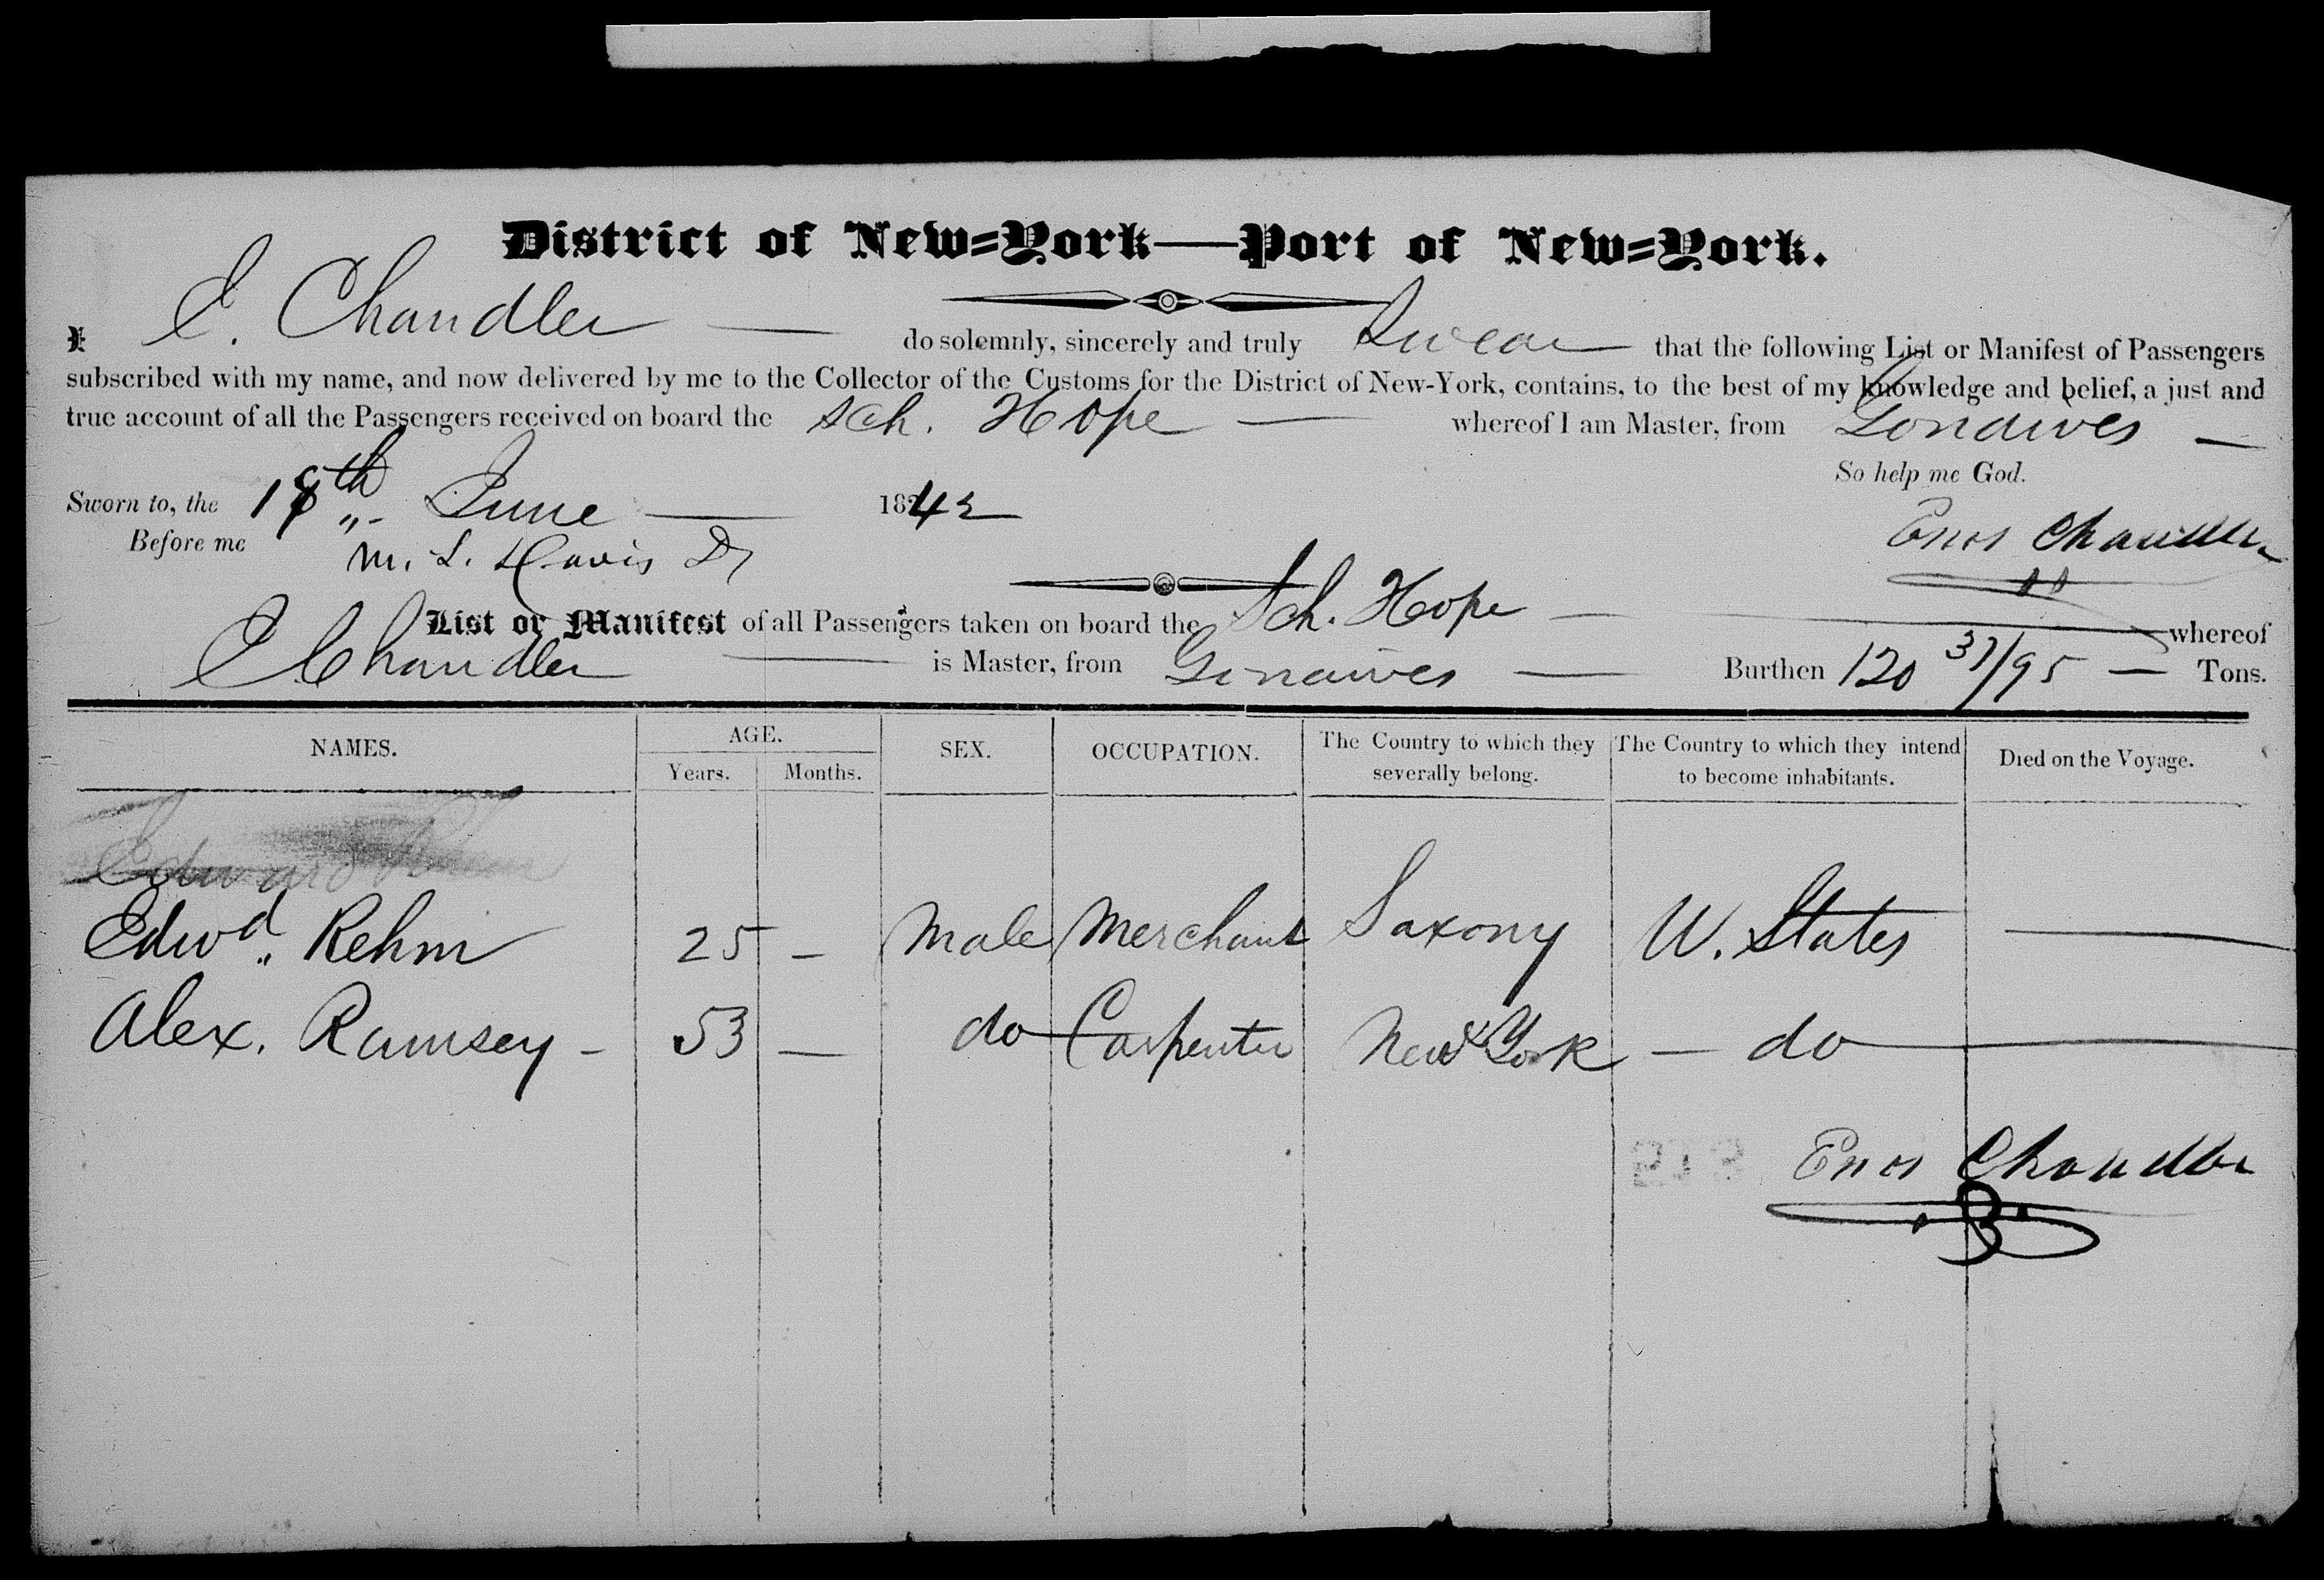 District of New=York—Port of New=York.
I E. Chandler — do solemnly, sincerely and truly Swear — that the following List or Manifest of Passengers
subscribed with my name, and now delivered by me to the Collector of the Customs for the District of New-York, contains, to the best of my knowledge and belief, a just and
true account of all the Passengers received on board the Sch. Hope — whereof I am Master, from Gonaives —
So help me God.
Sworn to, the 18th June — 1842
Before me M. L. Davis
Enos Chandler
List or Manifest of all Passengers taken on board the Sch. Hope — whereof
E Chandler — is Master, from Gonaives — Burthen 120 37/95 — Tons.
NAMES. AGE. SEX. OCCUPATION. The Country to which they severally belong. The Country to which they intend to become inhabitants. Died on the Voyage.
Years. Months.
Edward
Edwd. Rehm 25 – Male Merchant Saxony U. States —
Alex. Ramsey – 53 — do Carpenter New York — do —
Enos Chandler